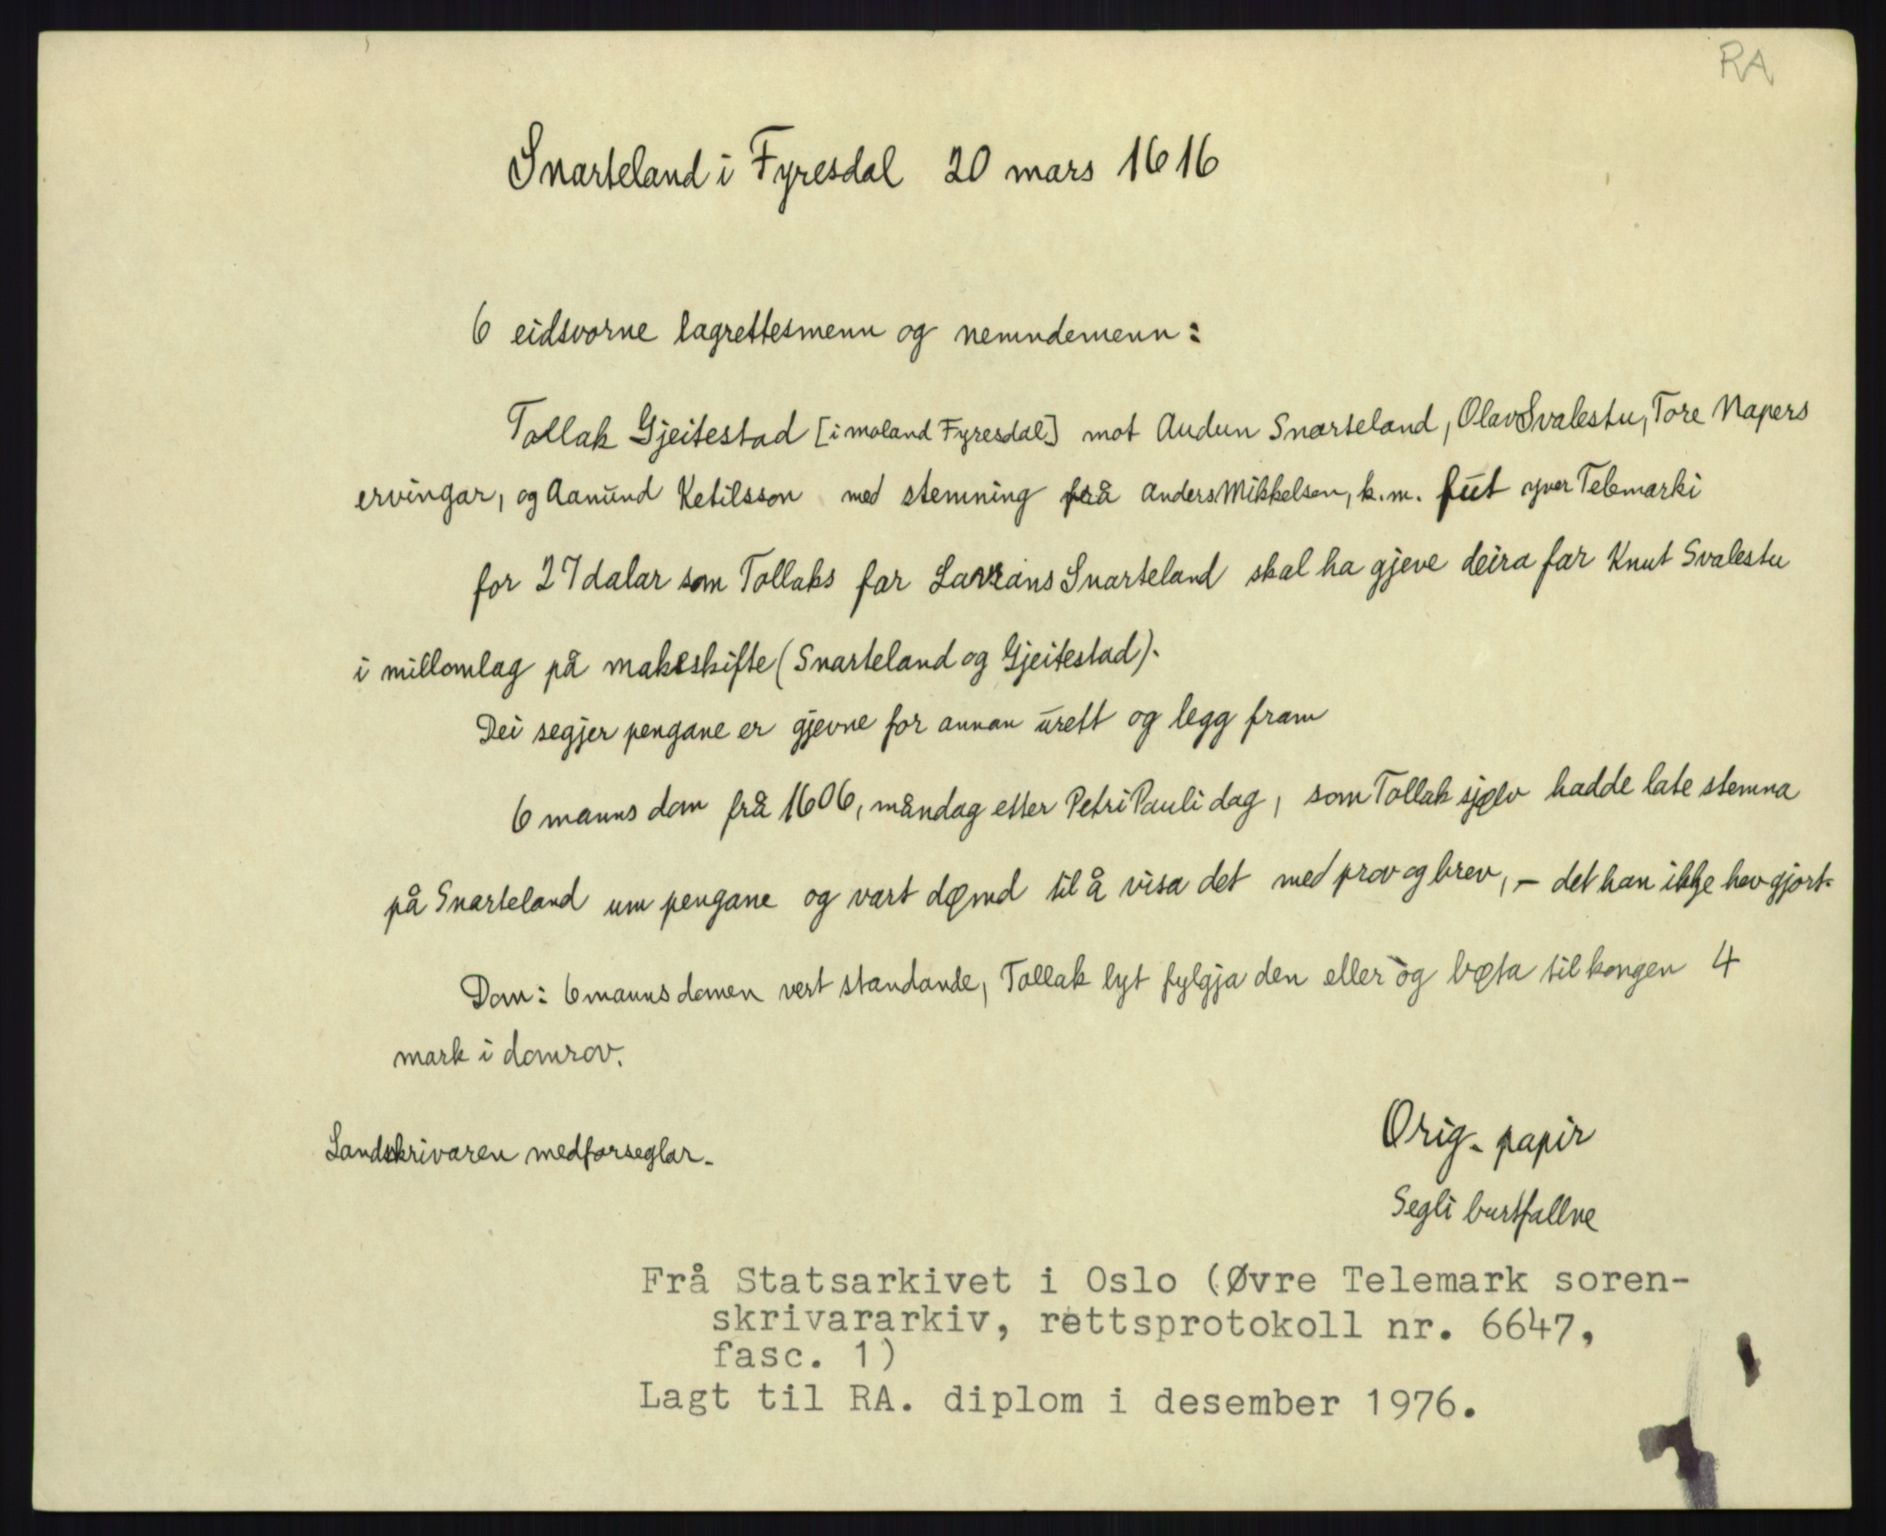 RA
Snarteland i Fyresdal 20 mars 1616
6 eidsvorne lagrettesmenn og nemndemenn:
Tollak Gjeitestad [i moland Fyresdal] mot Audun Snarteland, Olav Svalestu, Tore Napers
ervingar, og Aamund Ketilsson med stemning frå Anders Mikkelsen, k.m. fut yver Telemarki
for 27 dalar som Tollaks far Lavrans Snarteland skal ha gjeve deira far Knut Svalestu
i millomlag på makeskifte (Snarteland og Gjeitestad).
Dei segjer pengane er gjevne for annan urett og legg fram
6 manns dom frå 1606, måndag etter Petri Pauli dag, som Tollak sjølv hadde late stemna
på Snarteland um pengane og vart dømd til å visa det med prov og brev, – det han ikkje hev gjort.
Dom: 6 manns domen vert standande, Tollak lyt fylgja den eller og bøta til kongen 4
mark i domrov.
Landskrivaren medforseglar.
Orig. papir
Segli burtfallne
Frå Statsarkivet i Oslo (Øvre Telemark soren-
skrivararkiv, rettsprotokoll nr. 6647,
fasc. 1)
Lagt til RA. diplom i desember 1976.